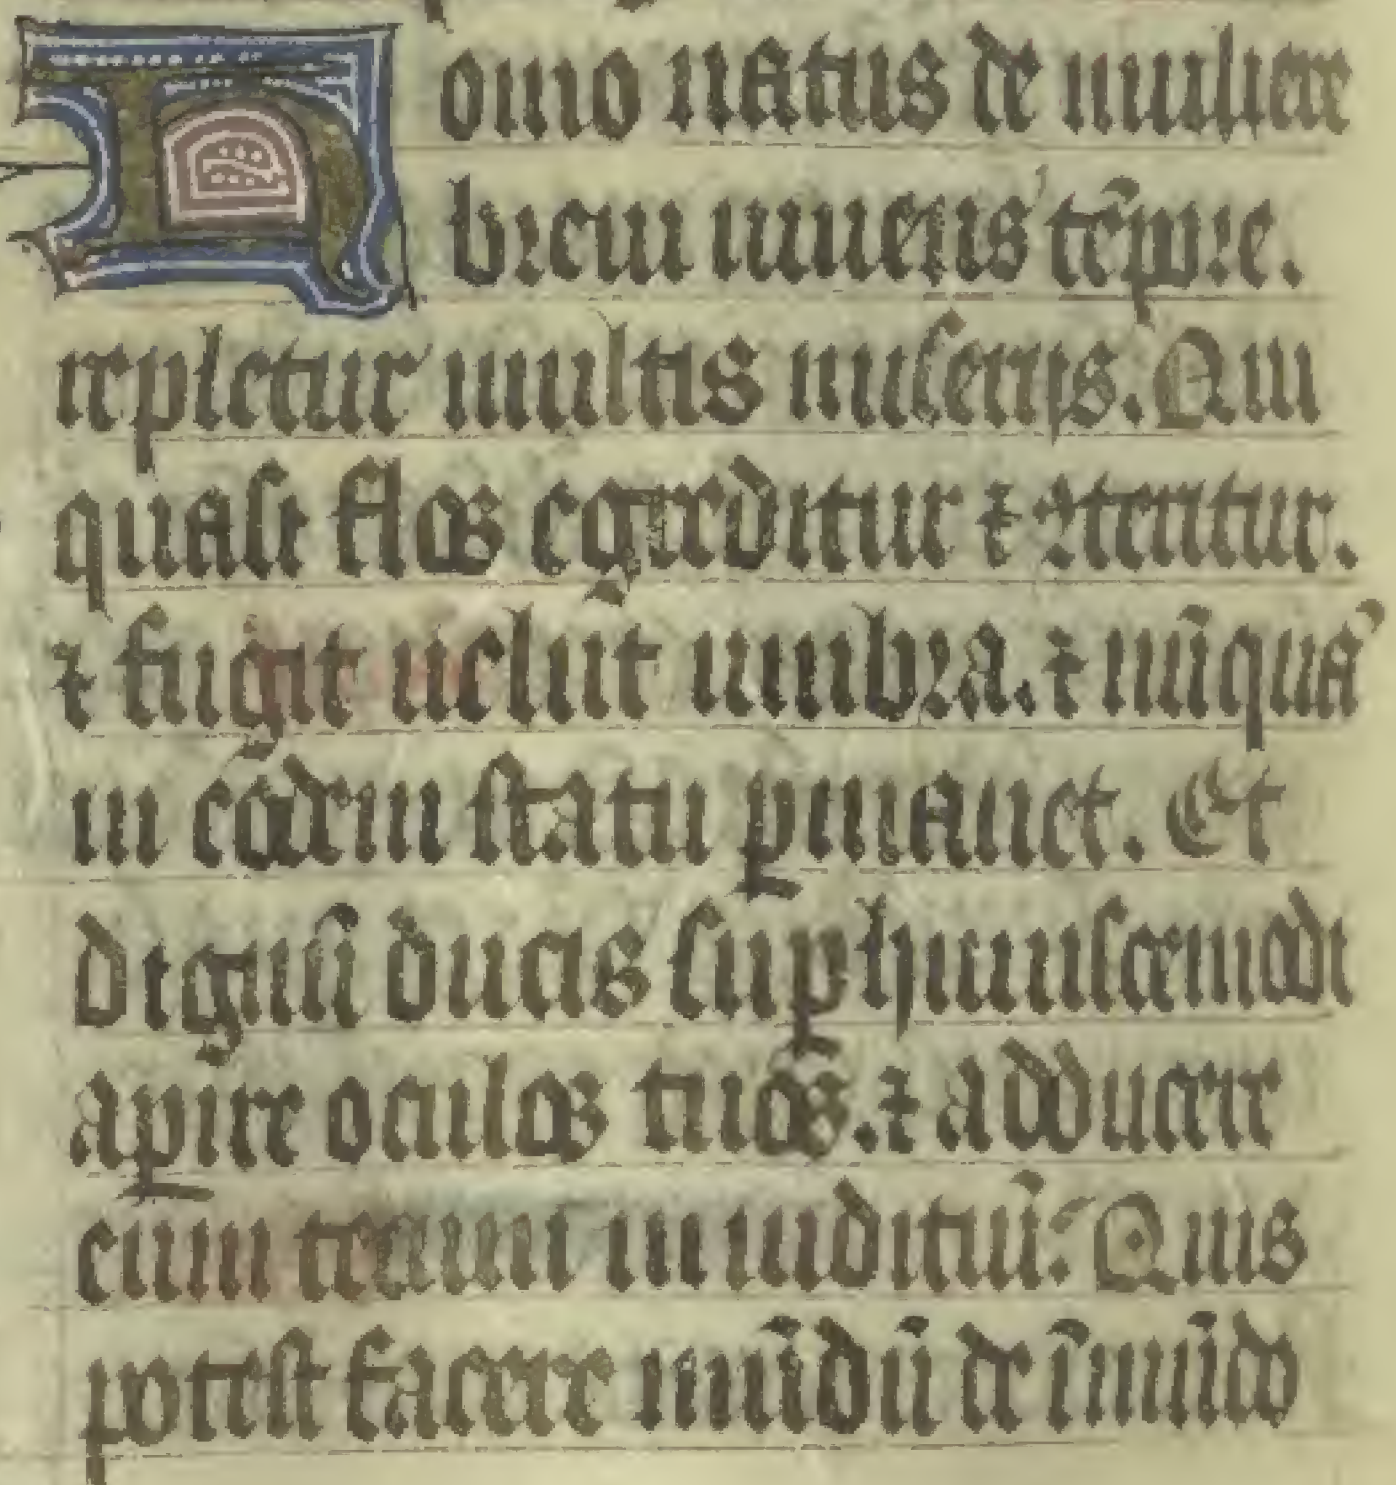 Homo natus de muliere
breui uiuens tēpore.
repletur multis miserijs. Qui
quasi flos egreditur ⁊ ꝯteritur.
⁊ fugit uelut umbra. ⁊ nūquā
in eodem statu ꝑmanet. Et
dignū ducis suꝑ huiuscemodi
aꝑire oculos tuos. ⁊ adducere
eum tecum in iuditiū? Quis
potest facere mūdū de īmūdo